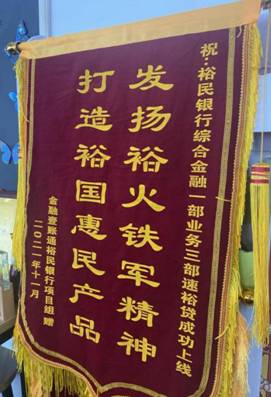 祝:裕民银行综合金融一部业务三部速裕贷成功上线
发扬裕火铁军精神
打造裕国惠民产品
金融壹账通裕民银行项目组赠
二〇二一年十一月